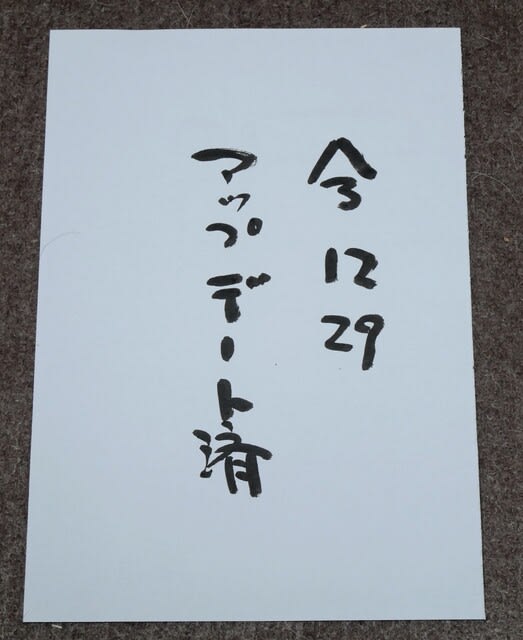 今 12 29
アップデート済